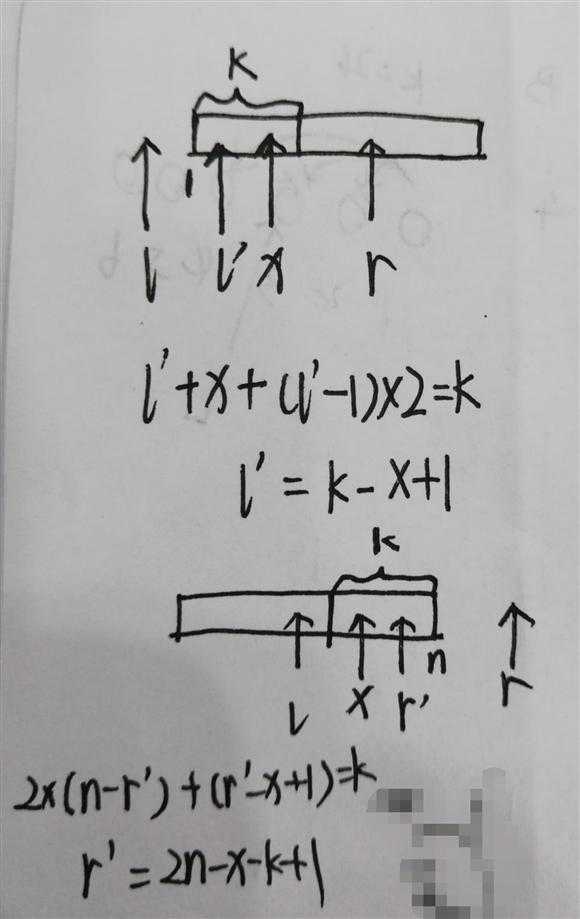 k
1
l l' x r
l'+x+(l'-1)x2=k
l'=k-x+1
k
n
l x r' r
2x(n-r')+(r'-x+1)=k
r'=2n-x-k+1